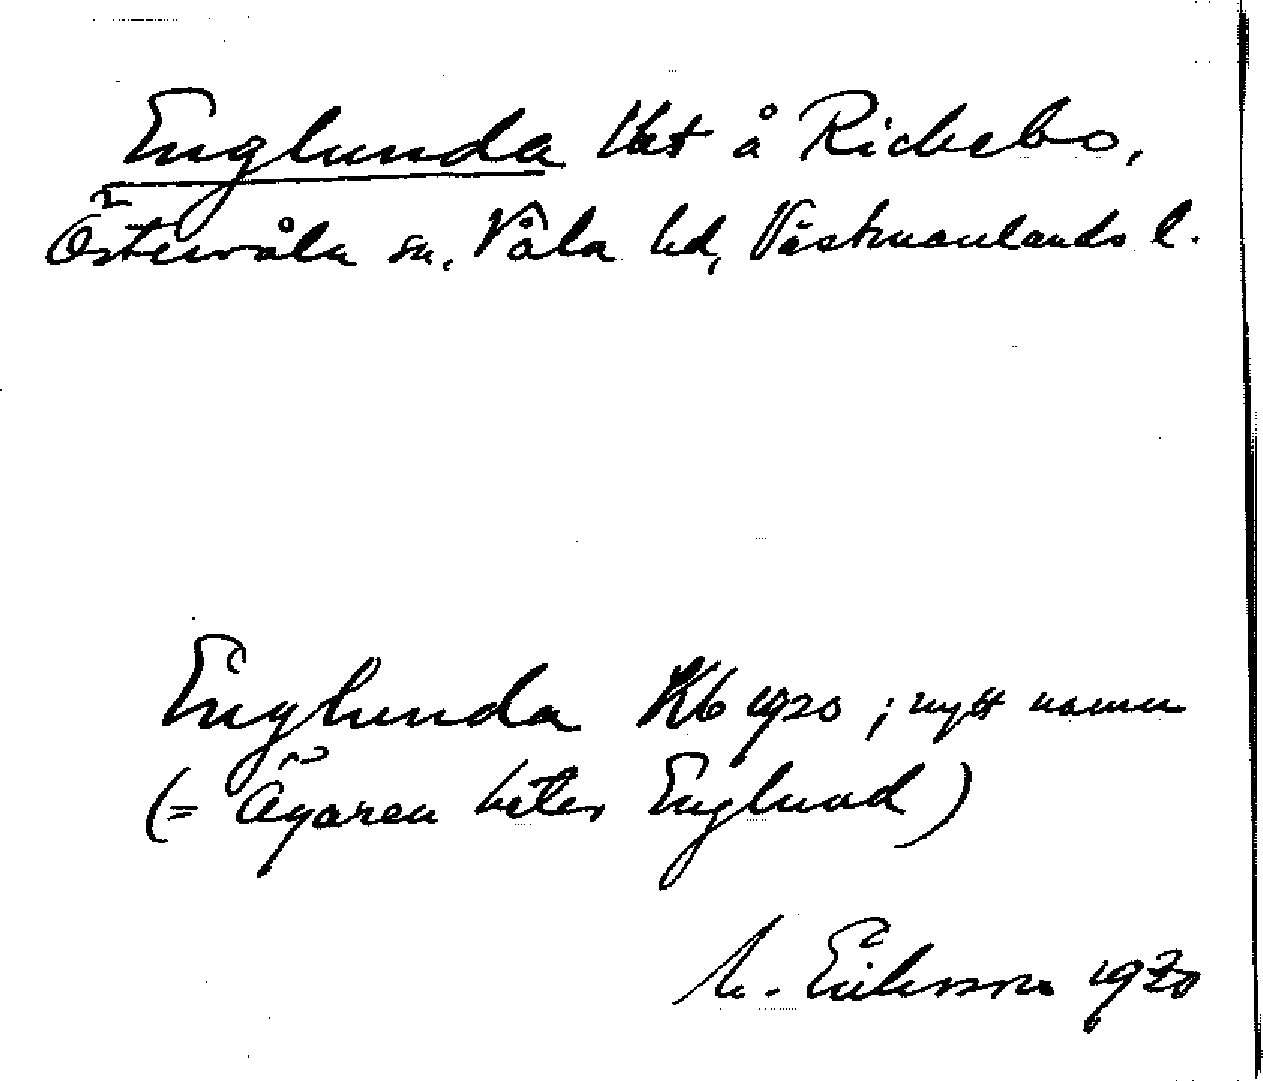 Englunda lht å Rickebo,
Östervåla sn, Våla hd, Västmanlands l.
Englunda Kb 1920 ; nytt namn
(= Ägaren heter Englund)
M. Eriksson 1930